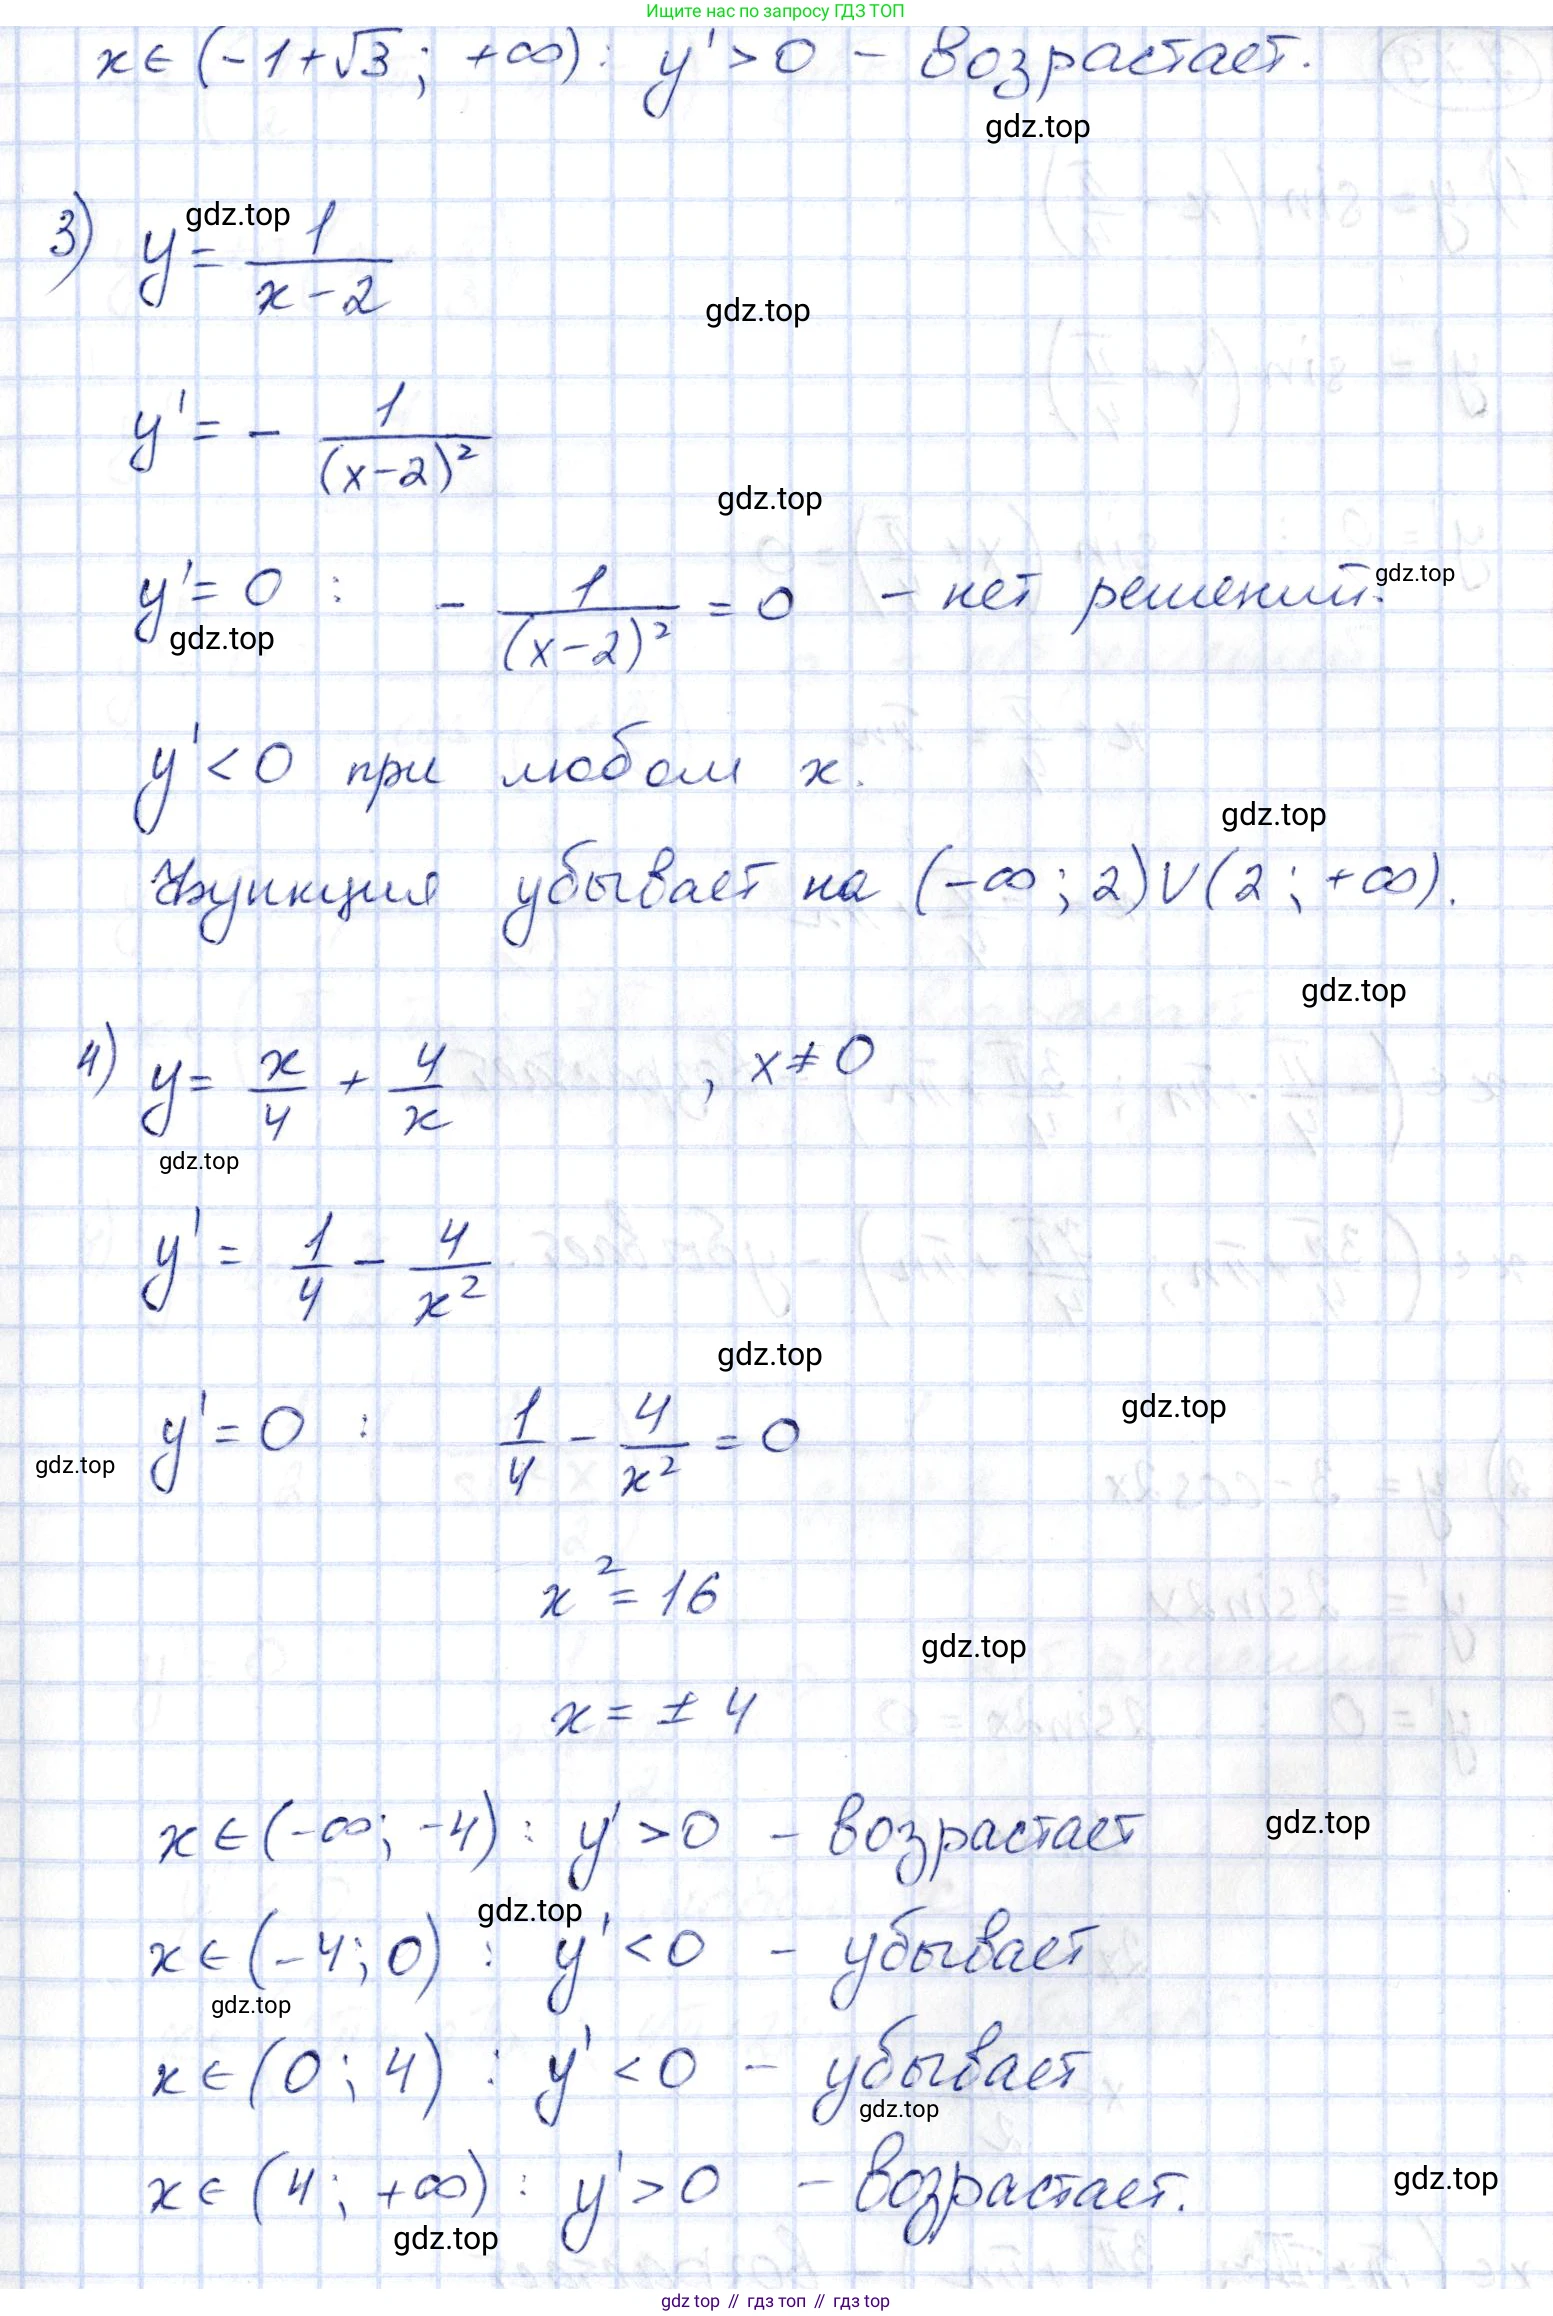 Ищите нас по запросу ГДЗ ТОП
x ∈ (-1+√3; +∞): y' > 0 - возрастает.
gdz.top
3) y = 1/(x-2)
gdz.top
gdz.top
y' = - 1/(x-2)²
gdz.top
y' = 0 : - 1/(x-2)² = 0 - нет решений.
gdz.top
gdz.top
y' < 0 при любом x.
gdz.top
Функция убывает на (-∞; 2) ∪ (2; +∞).
gdz.top
4) y = x/4 + 4/x , x ≠ 0
gdz.top
y' = 1/4 - 4/x²
gdz.top
gdz.top
y' = 0 : 1/4 - 4/x² = 0
gdz.top
x² = 16
gdz.top
x = ± 4
x ∈ (-∞; -4) : y' > 0 - возрастает
gdz.top
gdz.top
x ∈ (-4; 0) : y' < 0 - убывает
gdz.top
x ∈ (0; 4) : y' < 0 - убывает
gdz.top
x ∈ (4; +∞) : y' > 0 - возрастает.
gdz.top
gdz.top
gdz.top // гдз топ // гдз top